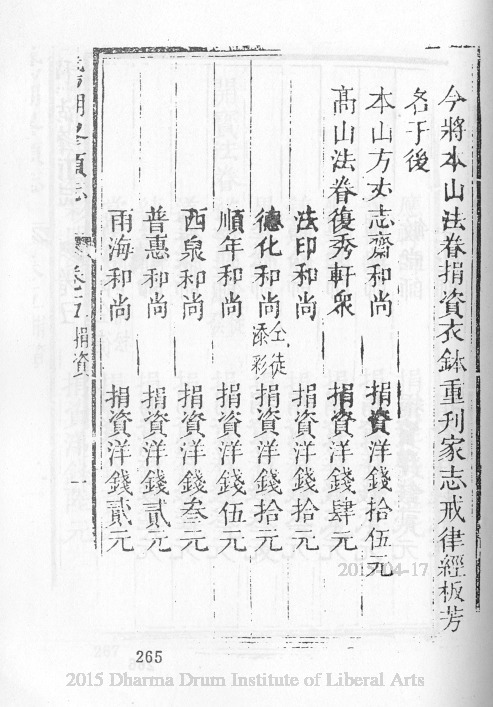 今將本山法眷捐資衣鉢重刊家志戒律經板芳
名于後
本山方丈志齋和尚 捐資洋錢拾伍元
高山法眷復秀軒眾 捐資洋錢肆元
法印和尚 捐資洋錢拾元
德化和尚 仝徒添彩 捐資洋錢拾元
順年和尚 捐資洋錢伍元
西泉和尚 捐資洋錢叁元
普惠和尚 捐資洋錢貳元
雨海和尚 捐資洋錢貳元
卷五 捐資 一
265
2015-04-17
2015 Dharma Drum Institute of Liberal Arts